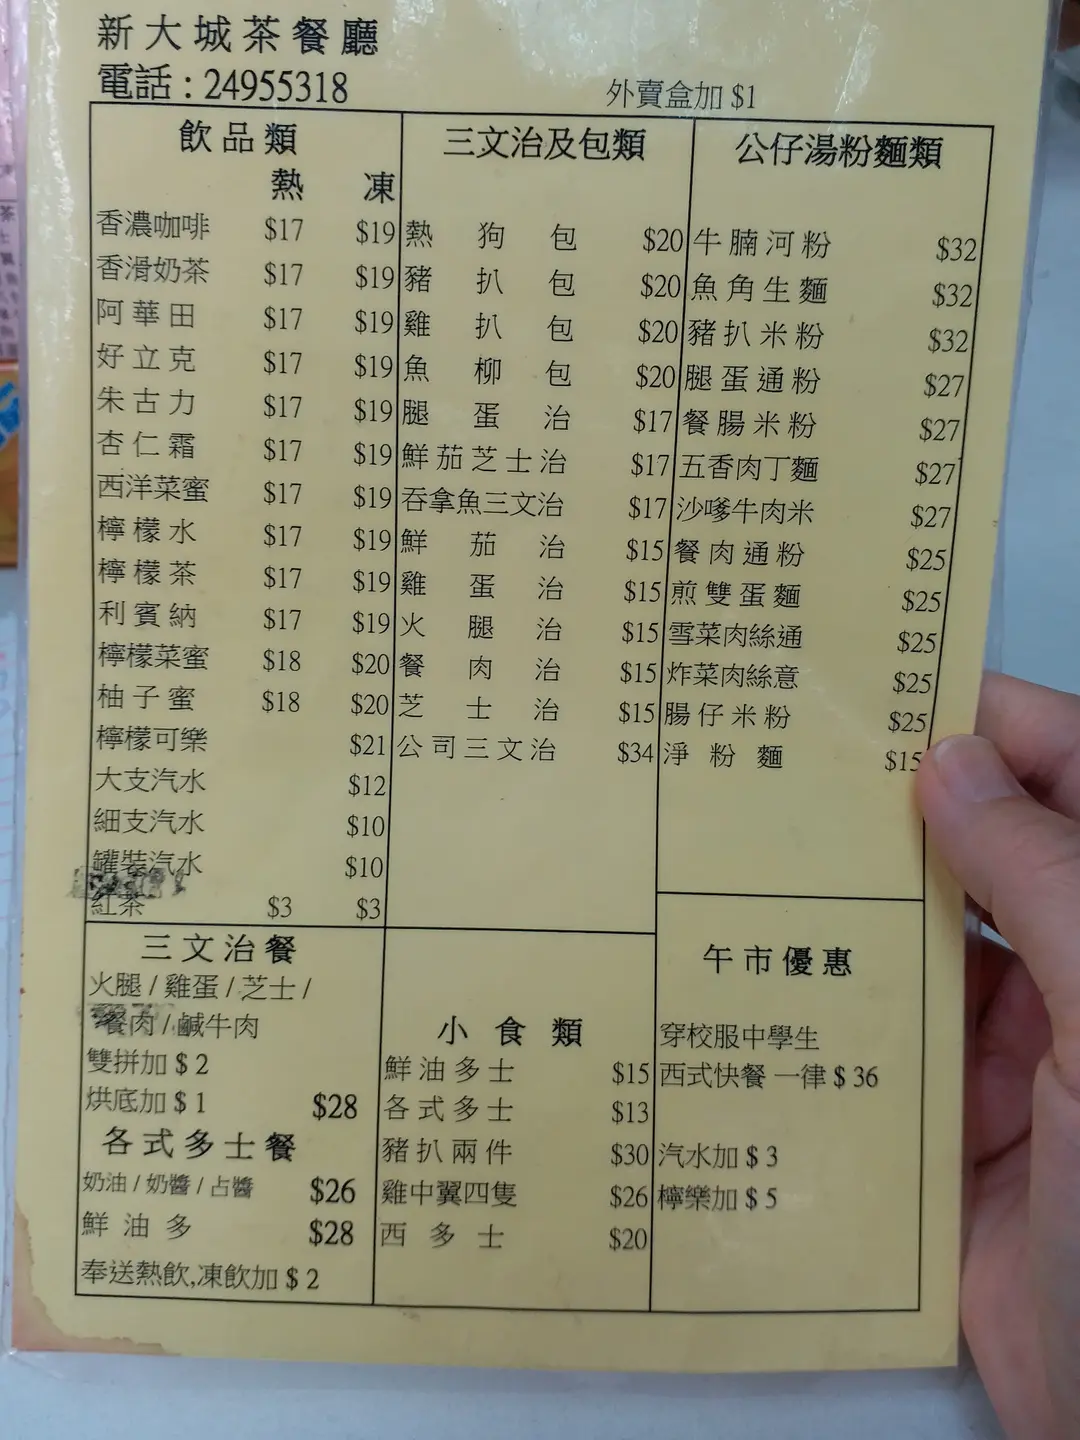 新大城茶餐廳
電話 : 24955318
外賣盒加 $1
飲品類
熱 凍
香濃咖啡 $17 $19
香滑奶茶 $17 $19
阿華田 $17 $19
好立克 $17 $19
朱古力 $17 $19
杏仁霜 $17 $19
西洋菜蜜 $17 $19
檸檬水 $17 $19
檸檬茶 $17 $19
利賓納 $17 $19
檸檬菜蜜 $18 $20
柚子蜜 $18 $20
檸檬可樂 $21
大支汽水 $12
細支汽水 $10
罐裝汽水 $10
紅茶 $3 $3
三文治及包類
熱狗包 $20
豬扒包 $20
雞扒包 $20
魚柳包 $20
腿蛋治 $17
鮮茄芝士治 $17
吞拿魚三文治 $17
鮮茄治 $15
雞蛋治 $15
火腿治 $15
餐肉治 $15
芝士治 $15
公司三文治 $34
公仔湯粉麵類
牛腩河粉 $32
魚角生麵 $32
豬扒米粉 $32
腿蛋通粉 $27
餐腸米粉 $27
五香肉丁麵 $27
沙嗲牛肉米 $27
餐肉通粉 $25
煎雙蛋麵 $25
雪菜肉絲通 $25
炸菜肉絲意 $25
腸仔米粉 $25
淨粉麵 $15
三文治餐
火腿 / 雞蛋 / 芝士 /
餐肉 / 鹹牛肉
雙拼加 $ 2
烘底加 $ 1 $28
各式多士餐
奶油 / 奶醬 / 占醬 $26
鮮油多 $28
奉送熱飲,凍飲加 $ 2
小食類
鮮油多士 $15
各式多士 $13
豬扒兩件 $30
雞中翼四隻 $26
西多士 $20
午市優惠
穿校服中學生
西式快餐 一律 $ 36
汽水加 $ 3
檸樂加 $ 5